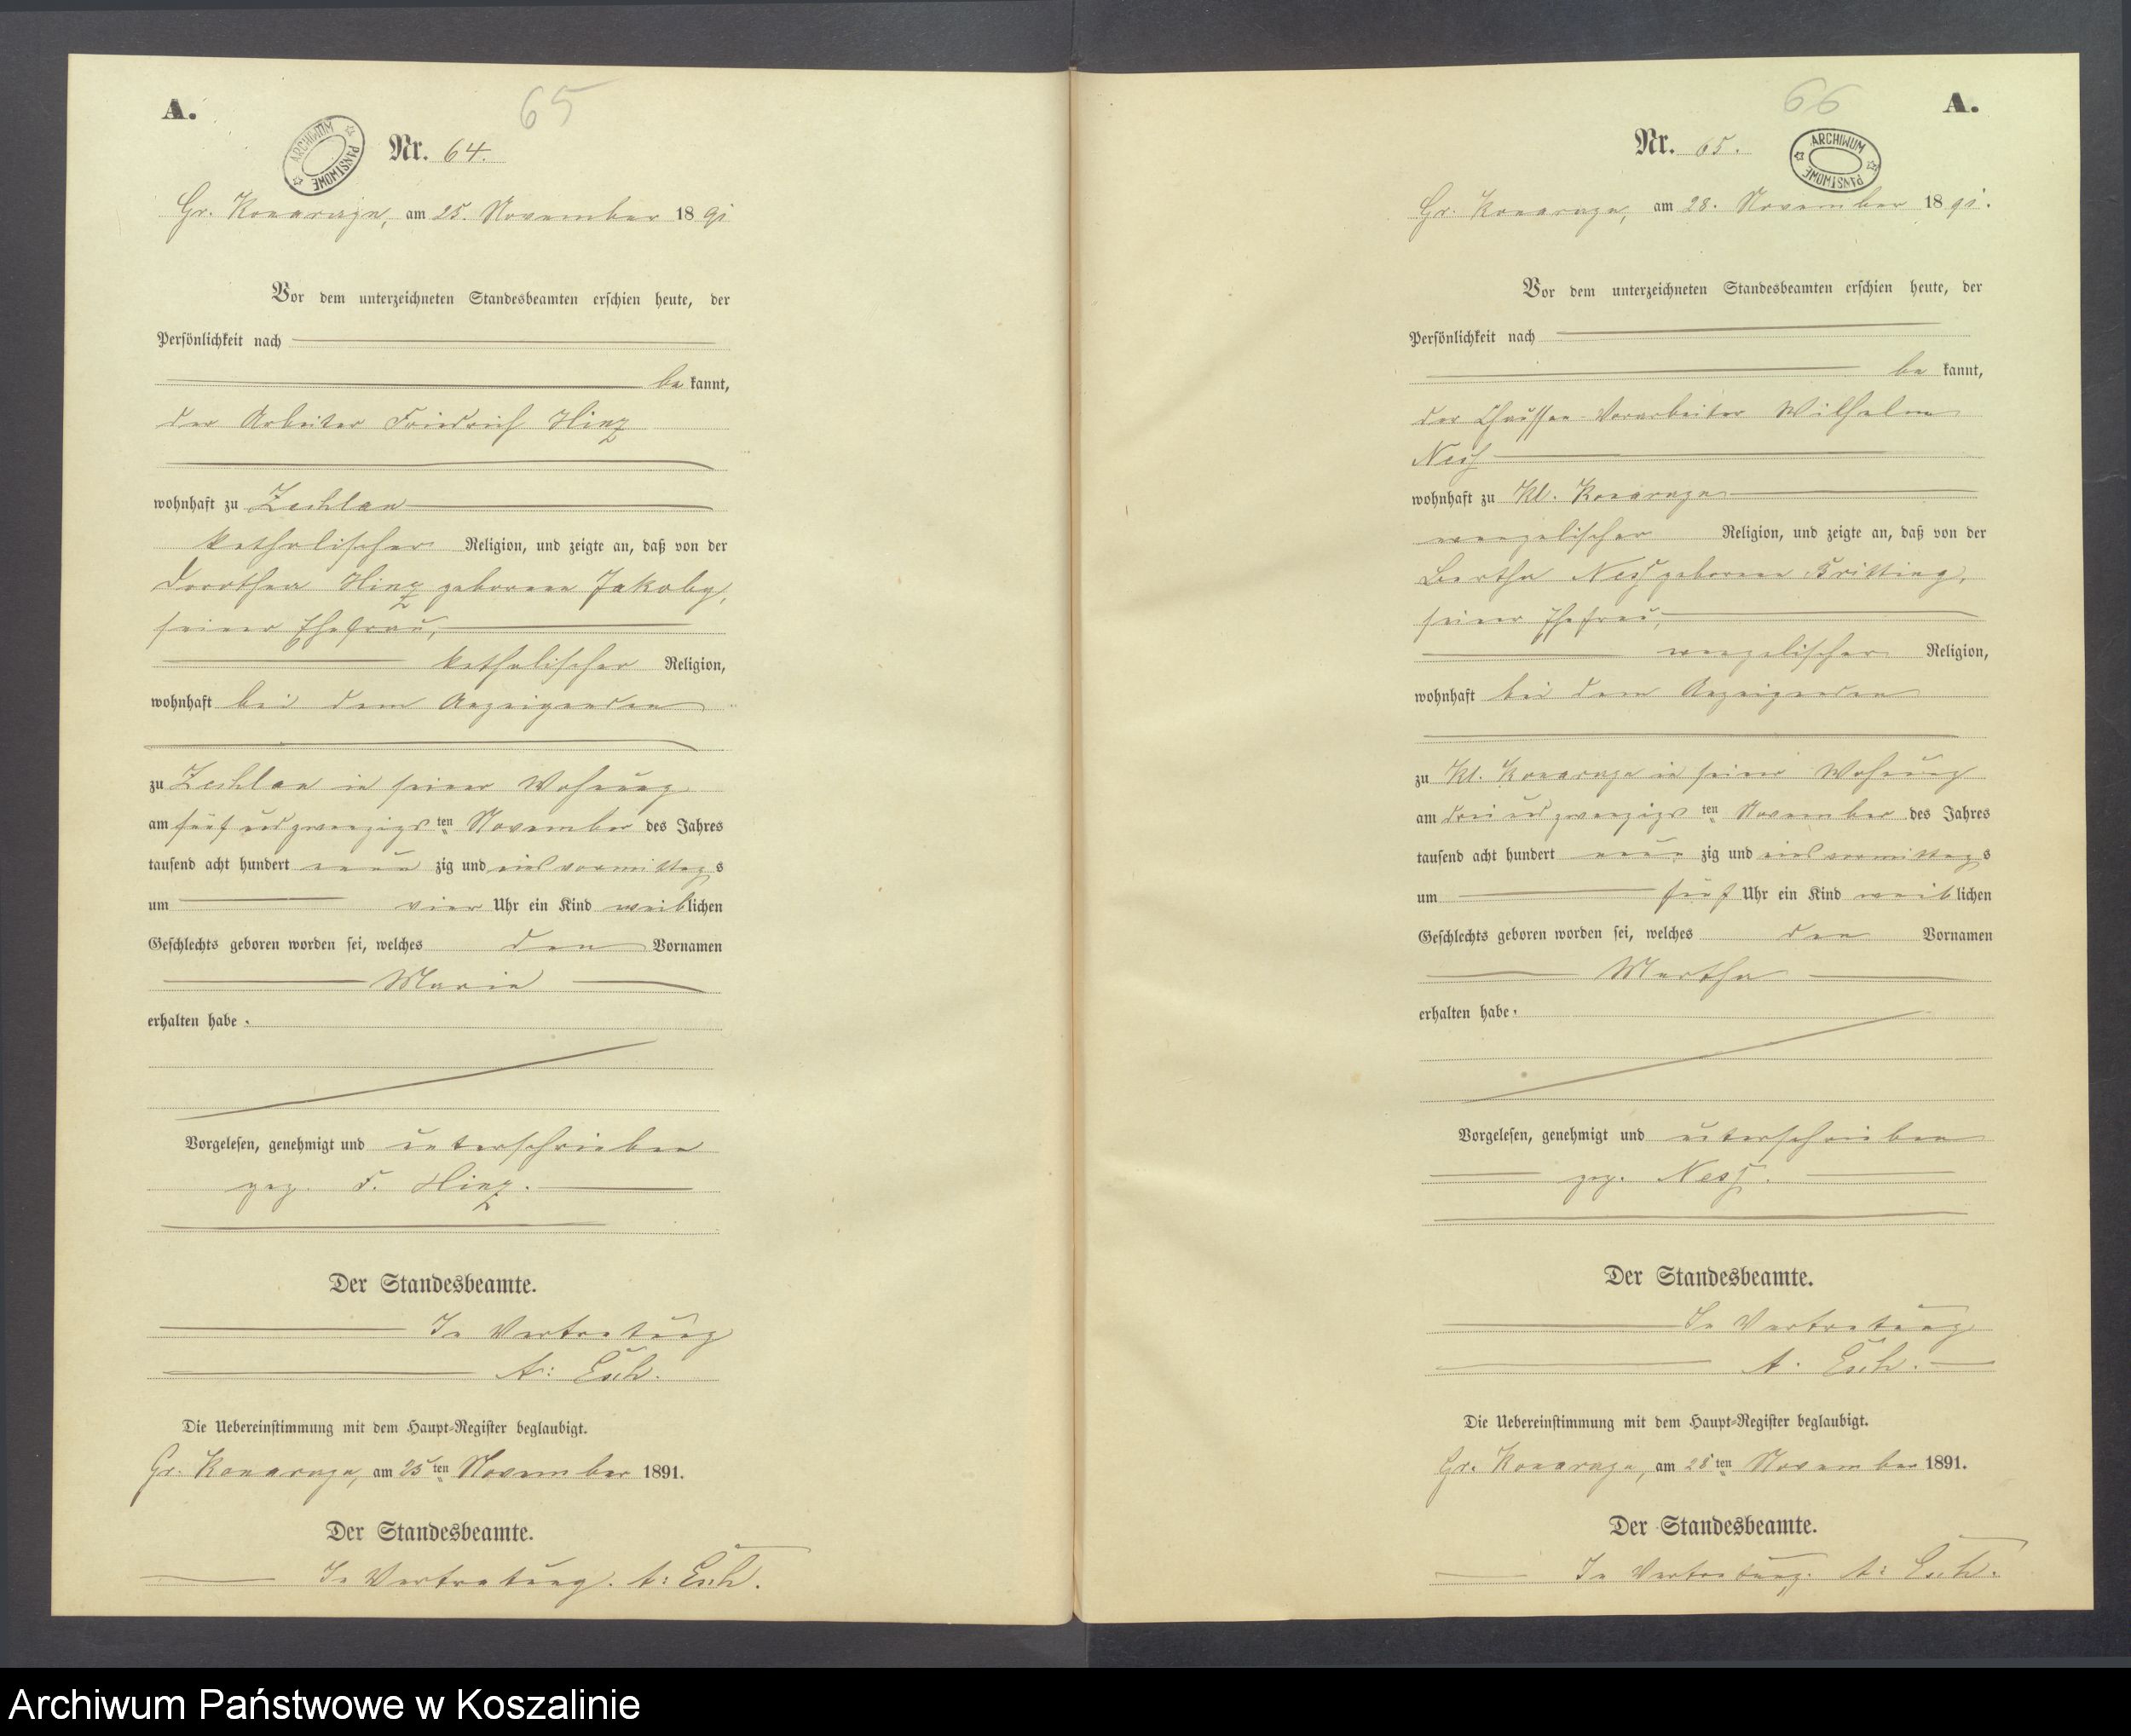 A.
65
ARCHIWUM PAŃSTWOWE
Nr. 64.
Gr. Konarczyn, am 25. November 1891
Vor dem unterzeichneten Standesbeamten erschien heute, der
Persönlichkeit nach
bekannt,
der Arbeiter Friedrich Hinz
wohnhaft zu Zechlau
katholischer Religion, und zeigte an, daß von der
Dorothea Hinz geborene Jakoby,
seiner Ehefrau,
katholischer Religion,
wohnhaft bei dem Anzeigenden
zu Zechlau in seiner Wohnung
am fünf und zwanzigsten November des Jahres
tausend acht hundert neunzig und eins vormittags
um vier Uhr ein Kind weiblichen
Geschlechts geboren worden sei, welches den Vornamen
Maria
erhalten habe.
Vorgelesen, genehmigt und unterschrieben
gez. F. Hinz.
Der Standesbeamte.
In Vertretung
A: Esch.
Die Uebereinstimmung mit dem Haupt-Register beglaubigt.
am 25ten November 1891.
Der Standesbeamte.
In Vertretung. A: Esch.
66
A.
Nr. 65.
ARCHIWUM PAŃSTWOWE
am 28. November 1891.
Vor dem unterzeichneten Standesbeamten erschien heute, der
Persönlichkeit nach
bekannt,
der Chaussee-Vorarbeiter Wilhelm
Neß
wohnhaft zu Kl.
evangelischer Religion, und zeigte an, daß von der
Bertha Neß geborene Britting,
seiner Ehefrau,
evangelischer Religion,
wohnhaft bei dem Anzeigenden
zu Kl. in seiner Wohnung
am drei und zwanzigsten November des Jahres
tausend acht hundert neunzig und eins vormittags
um fünf Uhr ein Kind weiblichen
Geschlechts geboren worden sei, welches den Vornamen
Martha
erhalten habe.
Vorgelesen, genehmigt und unterschrieben
gez. Neß.
Der Standesbeamte.
In Vertretung
A. Esch.
Die Uebereinstimmung mit dem Haupt-Register beglaubigt.
am 28ten November 1891.
Der Standesbeamte.
In Vertretung. A: Esch.
Archiwum Państwowe w Koszalinie